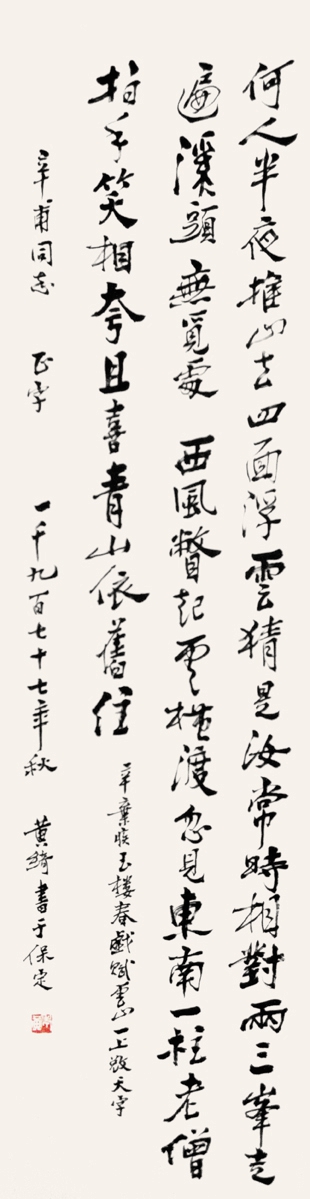 何人半夜推山去四面浮雲猜是汝常時相對兩三峯走
遍溪頭無覓處 西風瞥起雲橫渡忽見東南一柱老僧
拍手笑相夸且喜青山依舊住
辛棄疾玉樓春戲賦雲山一上激天字
辛甫同志 正字 一千九百七十七年秋 黄綺書于保定